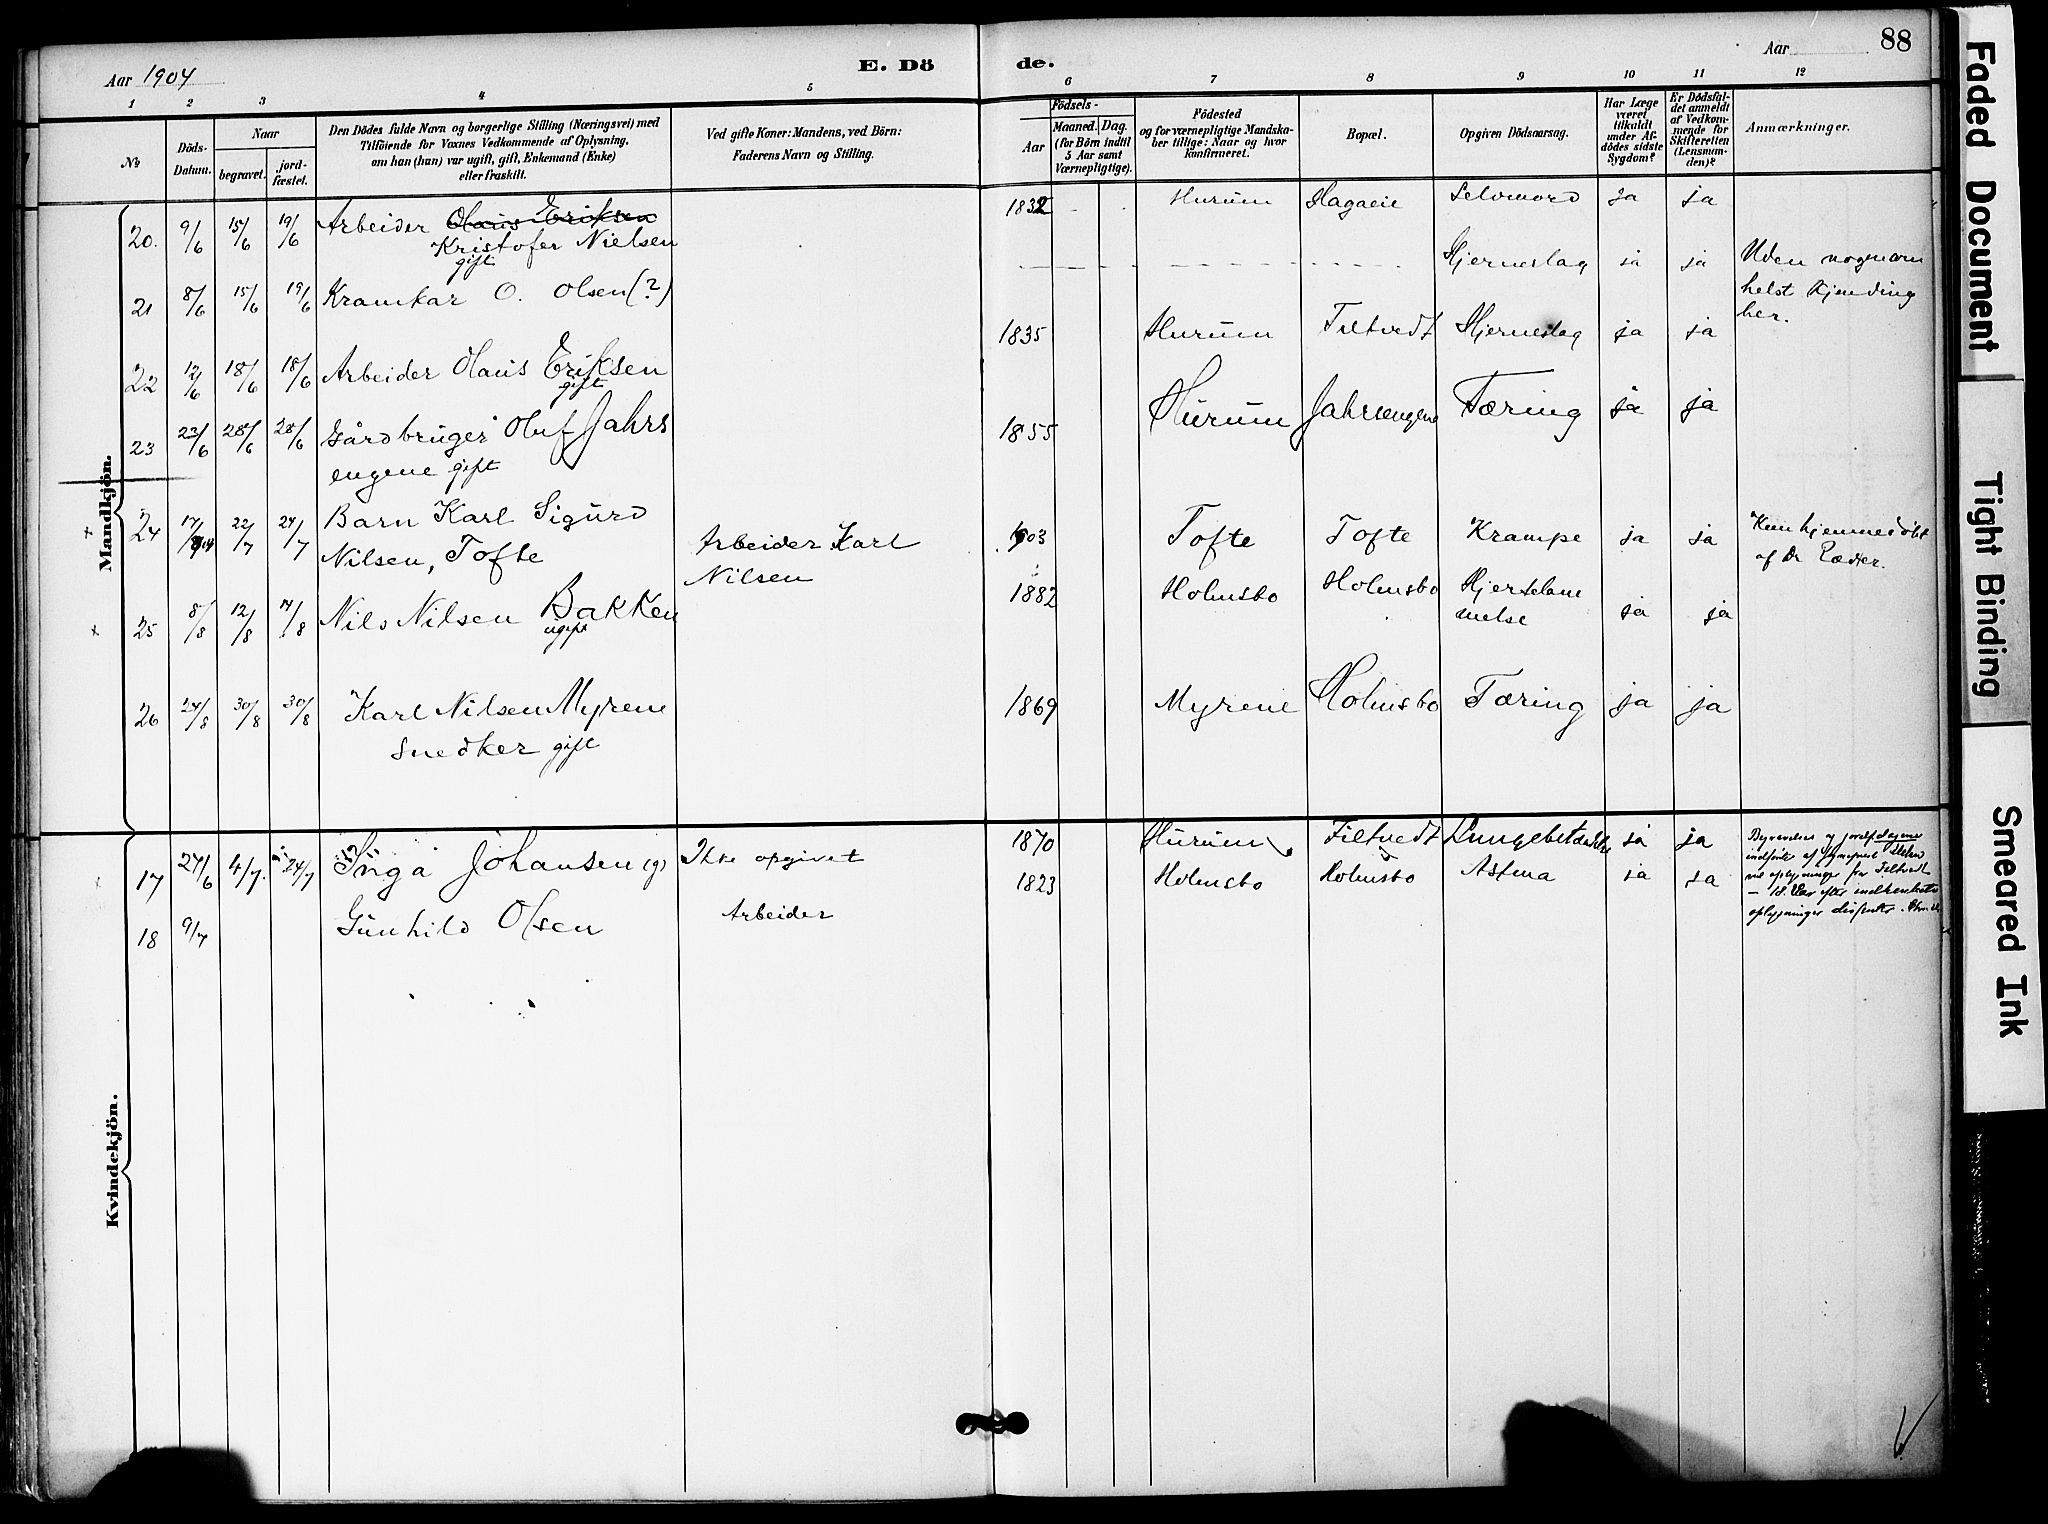 Aar 1904 E. Dö de. Aar 88
1 2 3 4 5 6 7 8 9 10 11 12
No
Döds-Datum.
Naar
begravet.
jord-fæstet.
Den Dödes fulde Navn og borgerlige Stilling (Næringsvei) med
Tilföiende for Voxnes Vedkommende af Oplysning,
om han (hun) var ugift, gift, Enkemand (Enke)
eller fraskilt.
Ved gifte Koner: Mandens, ved Börn:
Faderens Navn og Stilling.
Födsels-
Aar
Maaned. Dag.
(for Börn indtil
5 Aar samt
Værnepligtige).
Födested
og for værnepligtige Mandska-
ber tillige: Naar og hvor
konfirmeret.
Bopæl.
Opgiven Dödsaarsag.
Har Læge
været
tilkaldt
under Af-
dödes sidste
Sygdom?
Er Dödsfal-
det anmeldt
af Vedkom-
mende for
Skifteretten
(Lensman-
den)?
Anmærkninger.
Mandkjön.
20. 9/6 15/6 19/6 Arbeider Olaus Eriksen 1832 Hurum Hagaeie Selvmord ja ja
Kristofer Nielsen
gift
21 8/6 15/6 19/6 Kramkar O. Olsen (?) Hjerneslag ja ja Uden nogensom
helst Kjending
her.
22 12/6 18/6 18/6 Arbeider Olaus Eriksen 1835 Hurum Filtvedt Hjerneslag ja ja
gift
23 23/6 28/6 28/6 Gårdbruger Oluf Jahrs 1855 Hurum Jahrsengene Tæring ja ja
engene gift
24 17/7 22/7 24/7 Barn Karl Sigurd Arbeider Karl 1903 Tofte Tofte Krampe ja ja Kun hjemmedöbt
Nilsen, Tofte Nilsen af Dr
25 8/8 12/8 14/8 Nils Nilsen Bakken 1882 Holmsbo Holmsbo Hjertelam ja ja
ugift melse
26 24/8 30/8 30/8 Karl Nilsen Myrene 1869 Myrene Holmsbo Tæring ja ja
Snedker gift
Kvindekjön.
17 27/6 4/7. 24/7 Inga Johansen (g) Ikke opgivet 1870 Hurum Filtvedt Lungebetændelse ja ja
18 9/7 Gunhild Olsen Arbeider 1823 Holmsbo Holmsbo Astma ja ja
Faded Document
Tight Binding
Smeared Ink